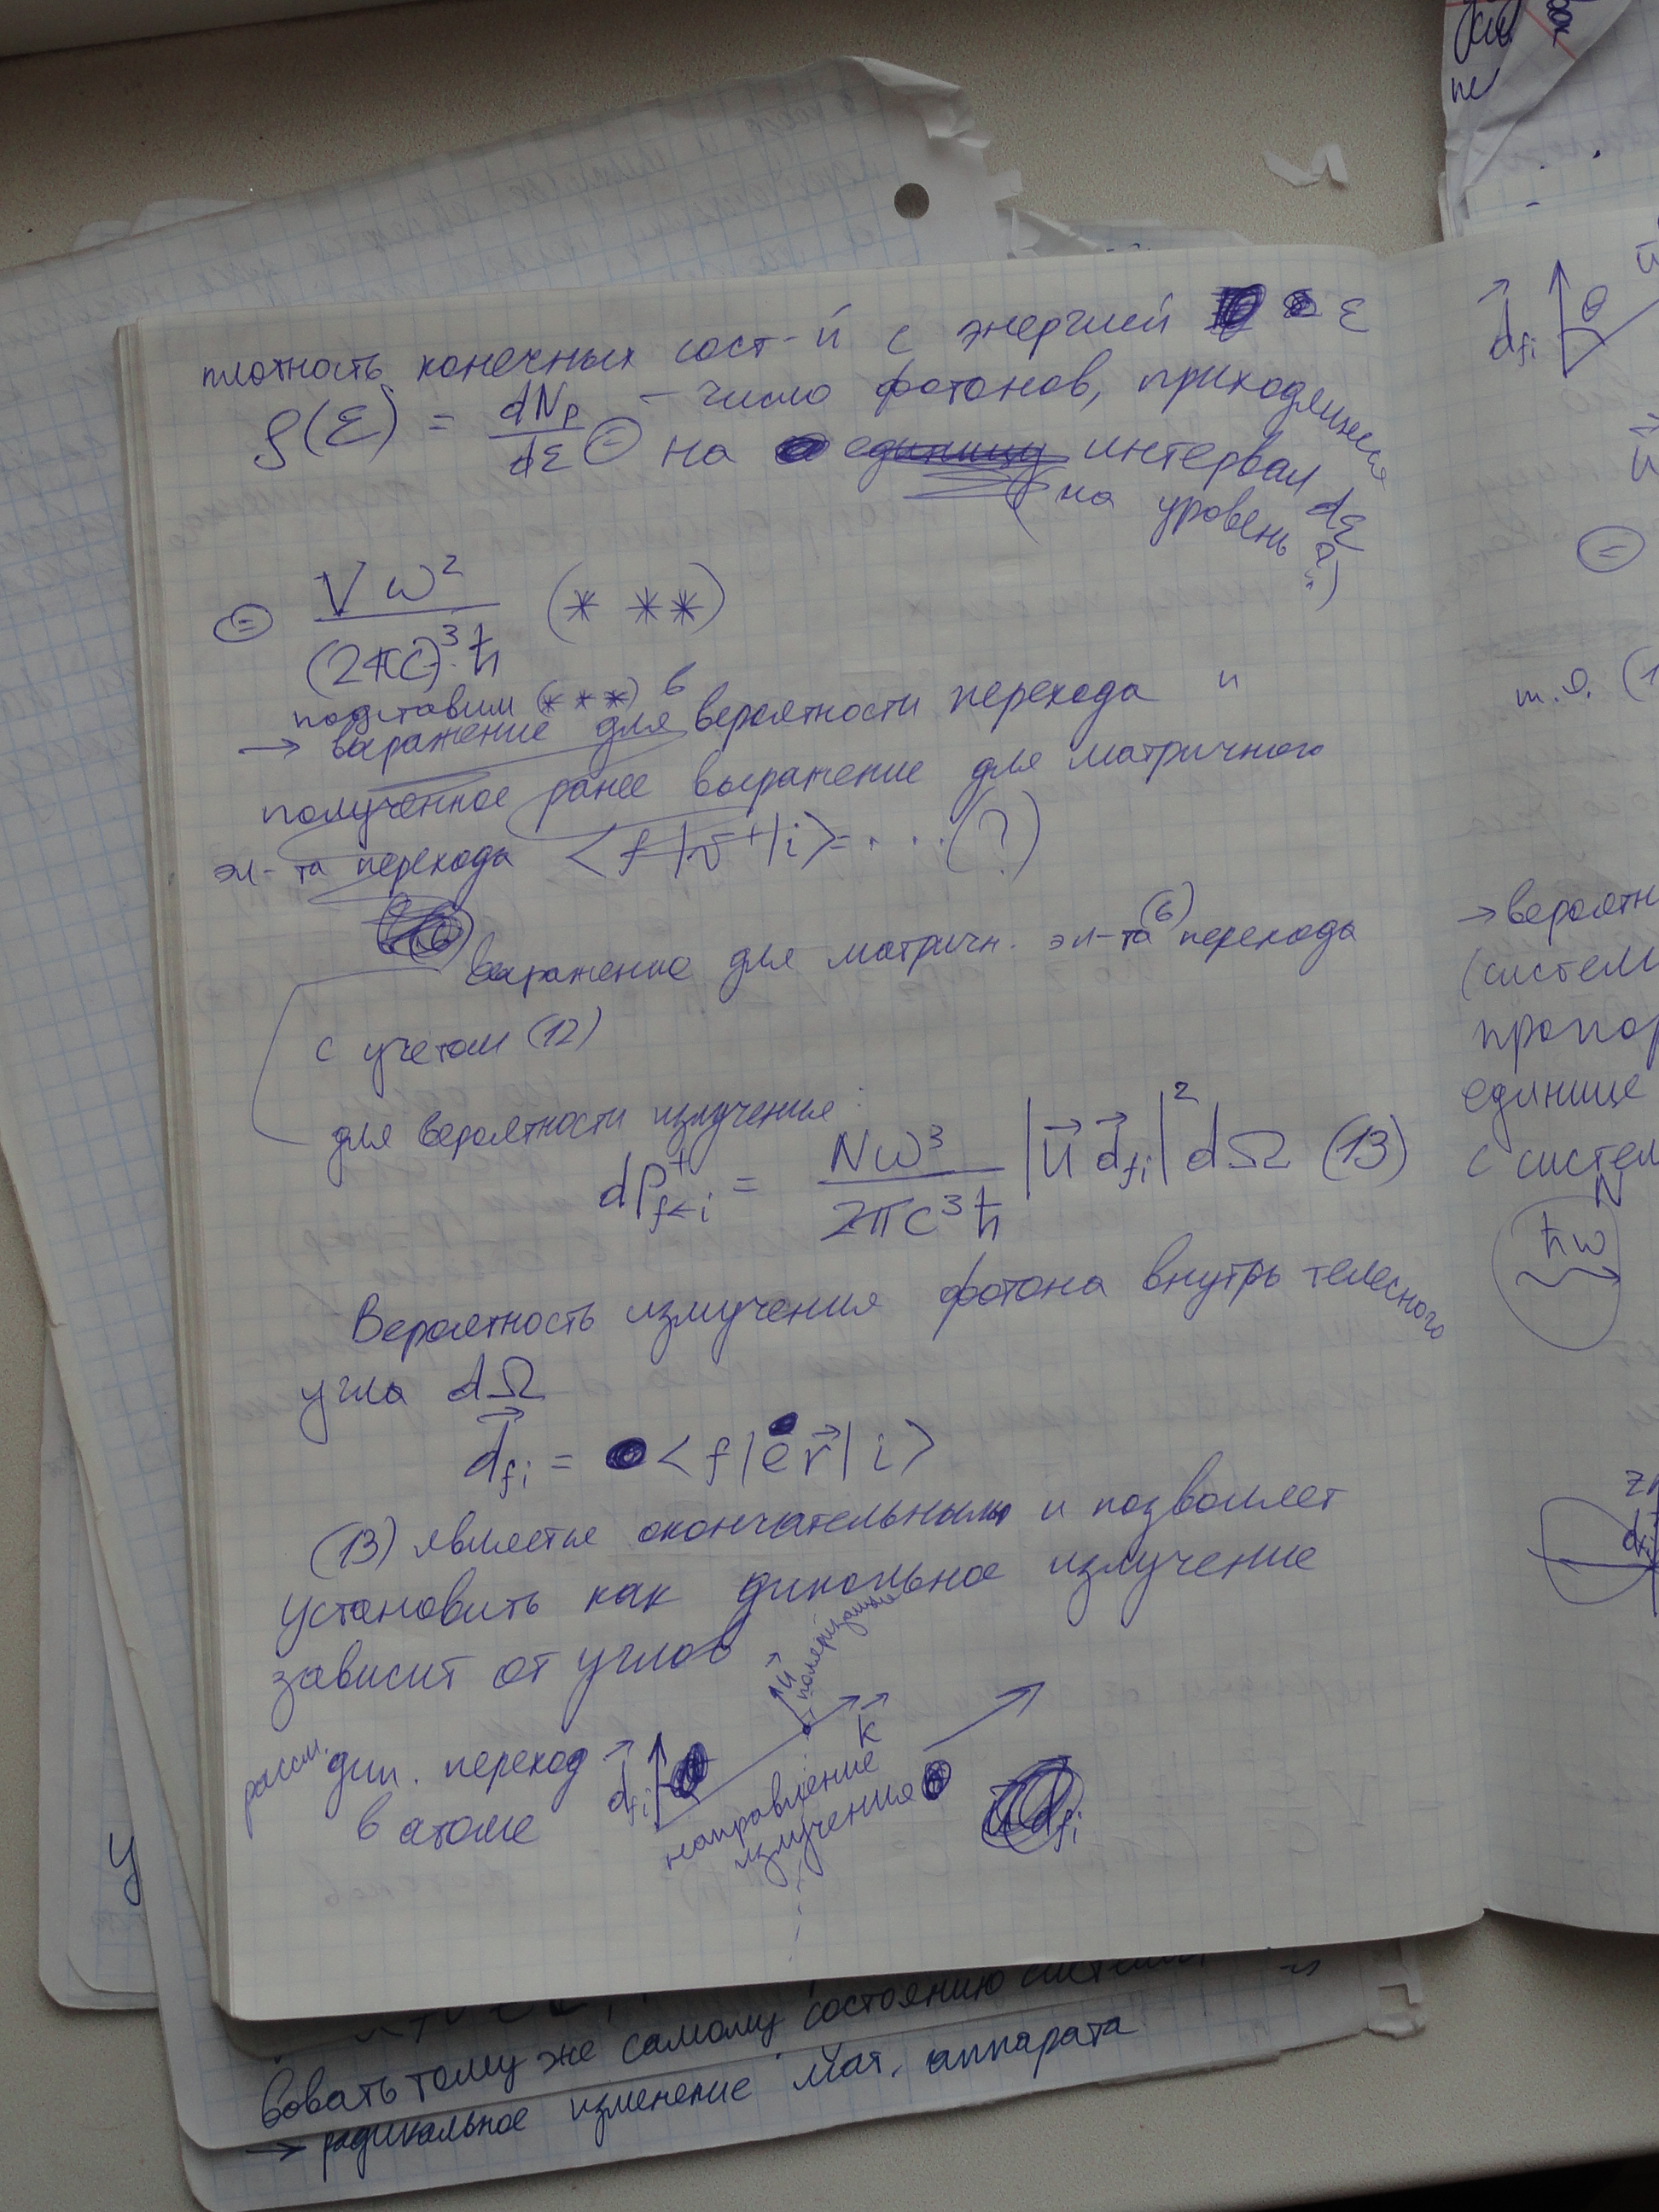 плотность конечных сост-й с энергией ε
ρ(ε) = dNp/dε – число фотонов, приходящихся
⊜ на единицу интервал dε
(на уровень ?)
⊜ Vω²/(2πc)³·ħ (* **)
подставим (***) в
→ выражение для вероятности перехода и
полученное ранее выражение для матричного
эл-та перехода <f|v⁺|i> = . . . (?)
выражение для матричн. эл-та (6) перехода
с учётом (12)
для вероятности излучения:
dP⁺f<i = Nω³/2πc³ħ |u⃗ d⃗fi|² dΩ (13)
Вероятность излучения фотона внутрь телесного
угла dΩ
d⃗fi = <f|er⃗|i>
(13) является окончательным и позволяет
установить как дипольное излучение
зависит от углов
рассм. дип. переход
в атоме
d⃗fi
u⃗ поляризация
k⃗
направление
излучения
dfi
d⃗fi θ
⊜
т.о. (1
→ вероятн
(систем
пропор
единице
с систем
N
ħω
z
dfi
вовать тому же самому состоянию системы
→ радикальное изменение мат. аппарата